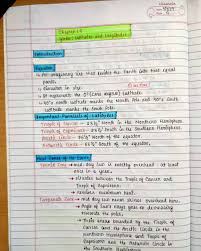 Chapter-2
Globe: Latitudes and Longitudes
Introduction
Equator
→ An imaginary line that divides the Earth into two equal
parts.
→ Circular in size.
→ It represents the 0° (zero degree) latitude.
→ 90° north latitude marks the North Pole and 90° South
latitude marks the South Pole.
Important Parallels of Latitudes
Tropic of Cancer - 23½° North in the Northern Hemisphere
Tropic of Capricorn - 23½° South in the Southern Hemisphere.
Arctic Circle - 66½° North of the equator.
Antarctic Circle - 66½° South of the equator.
Heat Zones of the Earth
Torrid Zone → mid-day sun is exactly overhead at least
once in a year.
→ latitudes between the Tropic of Cancer and
Tropic of Capricorn.
→ receives maximum heat.
Temperate Zone → mid-day sun never shines overhead here.
→ Angle of Sun's rays goes on decreasing
towards the poles.
→ Areas bounded by the Tropic of
Cancer and the Arctic Circle in the
Northern Hemisphere and Tropic of
Capricorn and the Antarctic Circle in
the Southern Hemisphere.